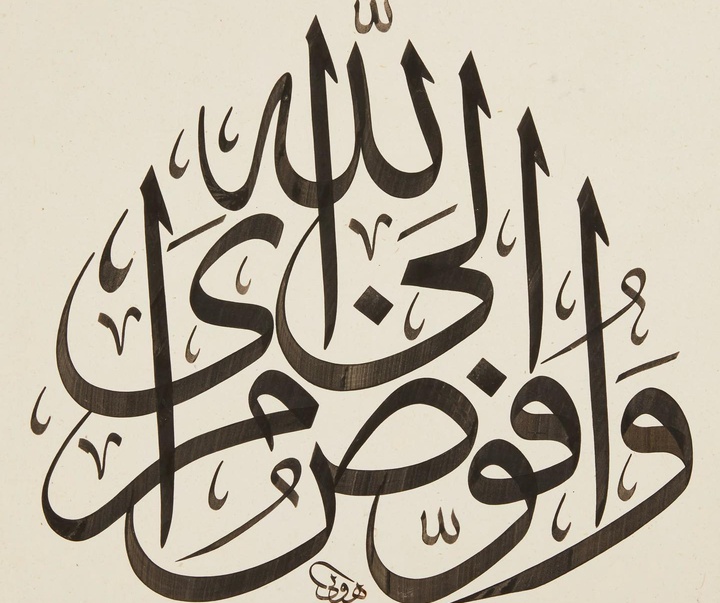 وَاُفَوِّضُ
اَمْرِى اِلَى
اللّٰه